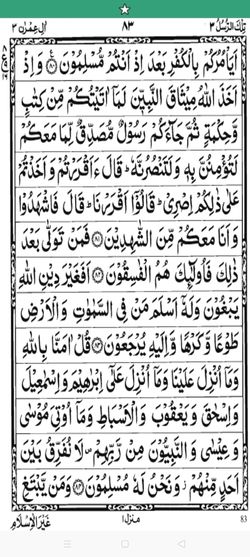 تِلْكَ الرُّسُلُ ٣ ٨٣ اٰلِ عِمْرٰن ٣
اَيَاْمُرُكُمْ بِالْكُفْرِ بَعْدَ اِذْ اَنْتُمْ مُّسْلِمُوْنَ ﴿٨٠﴾ وَاِذْ
اَخَذَ اللّٰهُ مِيْثَاقَ النَّبِيّٖنَ لَمَاۤ اٰتَيْتُكُمْ مِّنْ كِتٰبٍ
وَّحِكْمَةٍ ثُمَّ جَآءَكُمْ رَسُوْلٌ مُّصَدِّقٌ لِّمَا مَعَكُمْ
لَتُؤْمِنُنَّ بِهٖ وَلَتَنْصُرُنَّهٗ ؕ قَالَ ءَاَقْرَرْتُمْ وَاَخَذْتُمْ
عَلٰى ذٰلِكُمْ اِصْرِيْ ؕ قَالُوْۤا اَقْرَرْنَا ؕ قَالَ فَاشْهَدُوْا
وَاَنَا مَعَكُمْ مِّنَ الشّٰهِدِيْنَ ﴿٨١﴾ فَمَنْ تَوَلّٰى بَعْدَ
ذٰلِكَ فَاُولٰٓئِكَ هُمُ الْفٰسِقُوْنَ ﴿٨٢﴾ اَفَغَيْرَ دِيْنِ اللّٰهِ
يَبْغُوْنَ وَلَهٗۤ اَسْلَمَ مَنْ فِى السَّمٰوٰتِ وَالْاَرْضِ
طَوْعًا وَّكَرْهًا وَّاِلَيْهِ يُرْجَعُوْنَ ﴿٨٣﴾ قُلْ اٰمَنَّا بِاللّٰهِ
وَمَاۤ اُنْزِلَ عَلَيْنَا وَمَاۤ اُنْزِلَ عَلٰۤى اِبْرٰهِيْمَ وَاِسْمٰعِيْلَ
وَاِسْحٰقَ وَيَعْقُوْبَ وَالْاَسْبَاطِ وَمَاۤ اُوْتِيَ مُوْسٰى
وَعِيْسٰى وَالنَّبِيُّوْنَ مِنْ رَّبِّهِمْ ۪ لَا نُفَرِّقُ بَيْنَ
اَحَدٍ مِّنْهُمْ ؗ وَنَحْنُ لَهٗ مُسْلِمُوْنَ ﴿٨٤﴾ وَمَنْ يَّبْتَغِ
غَيْرَ الْاِسْلَامِ منزل ١ 83